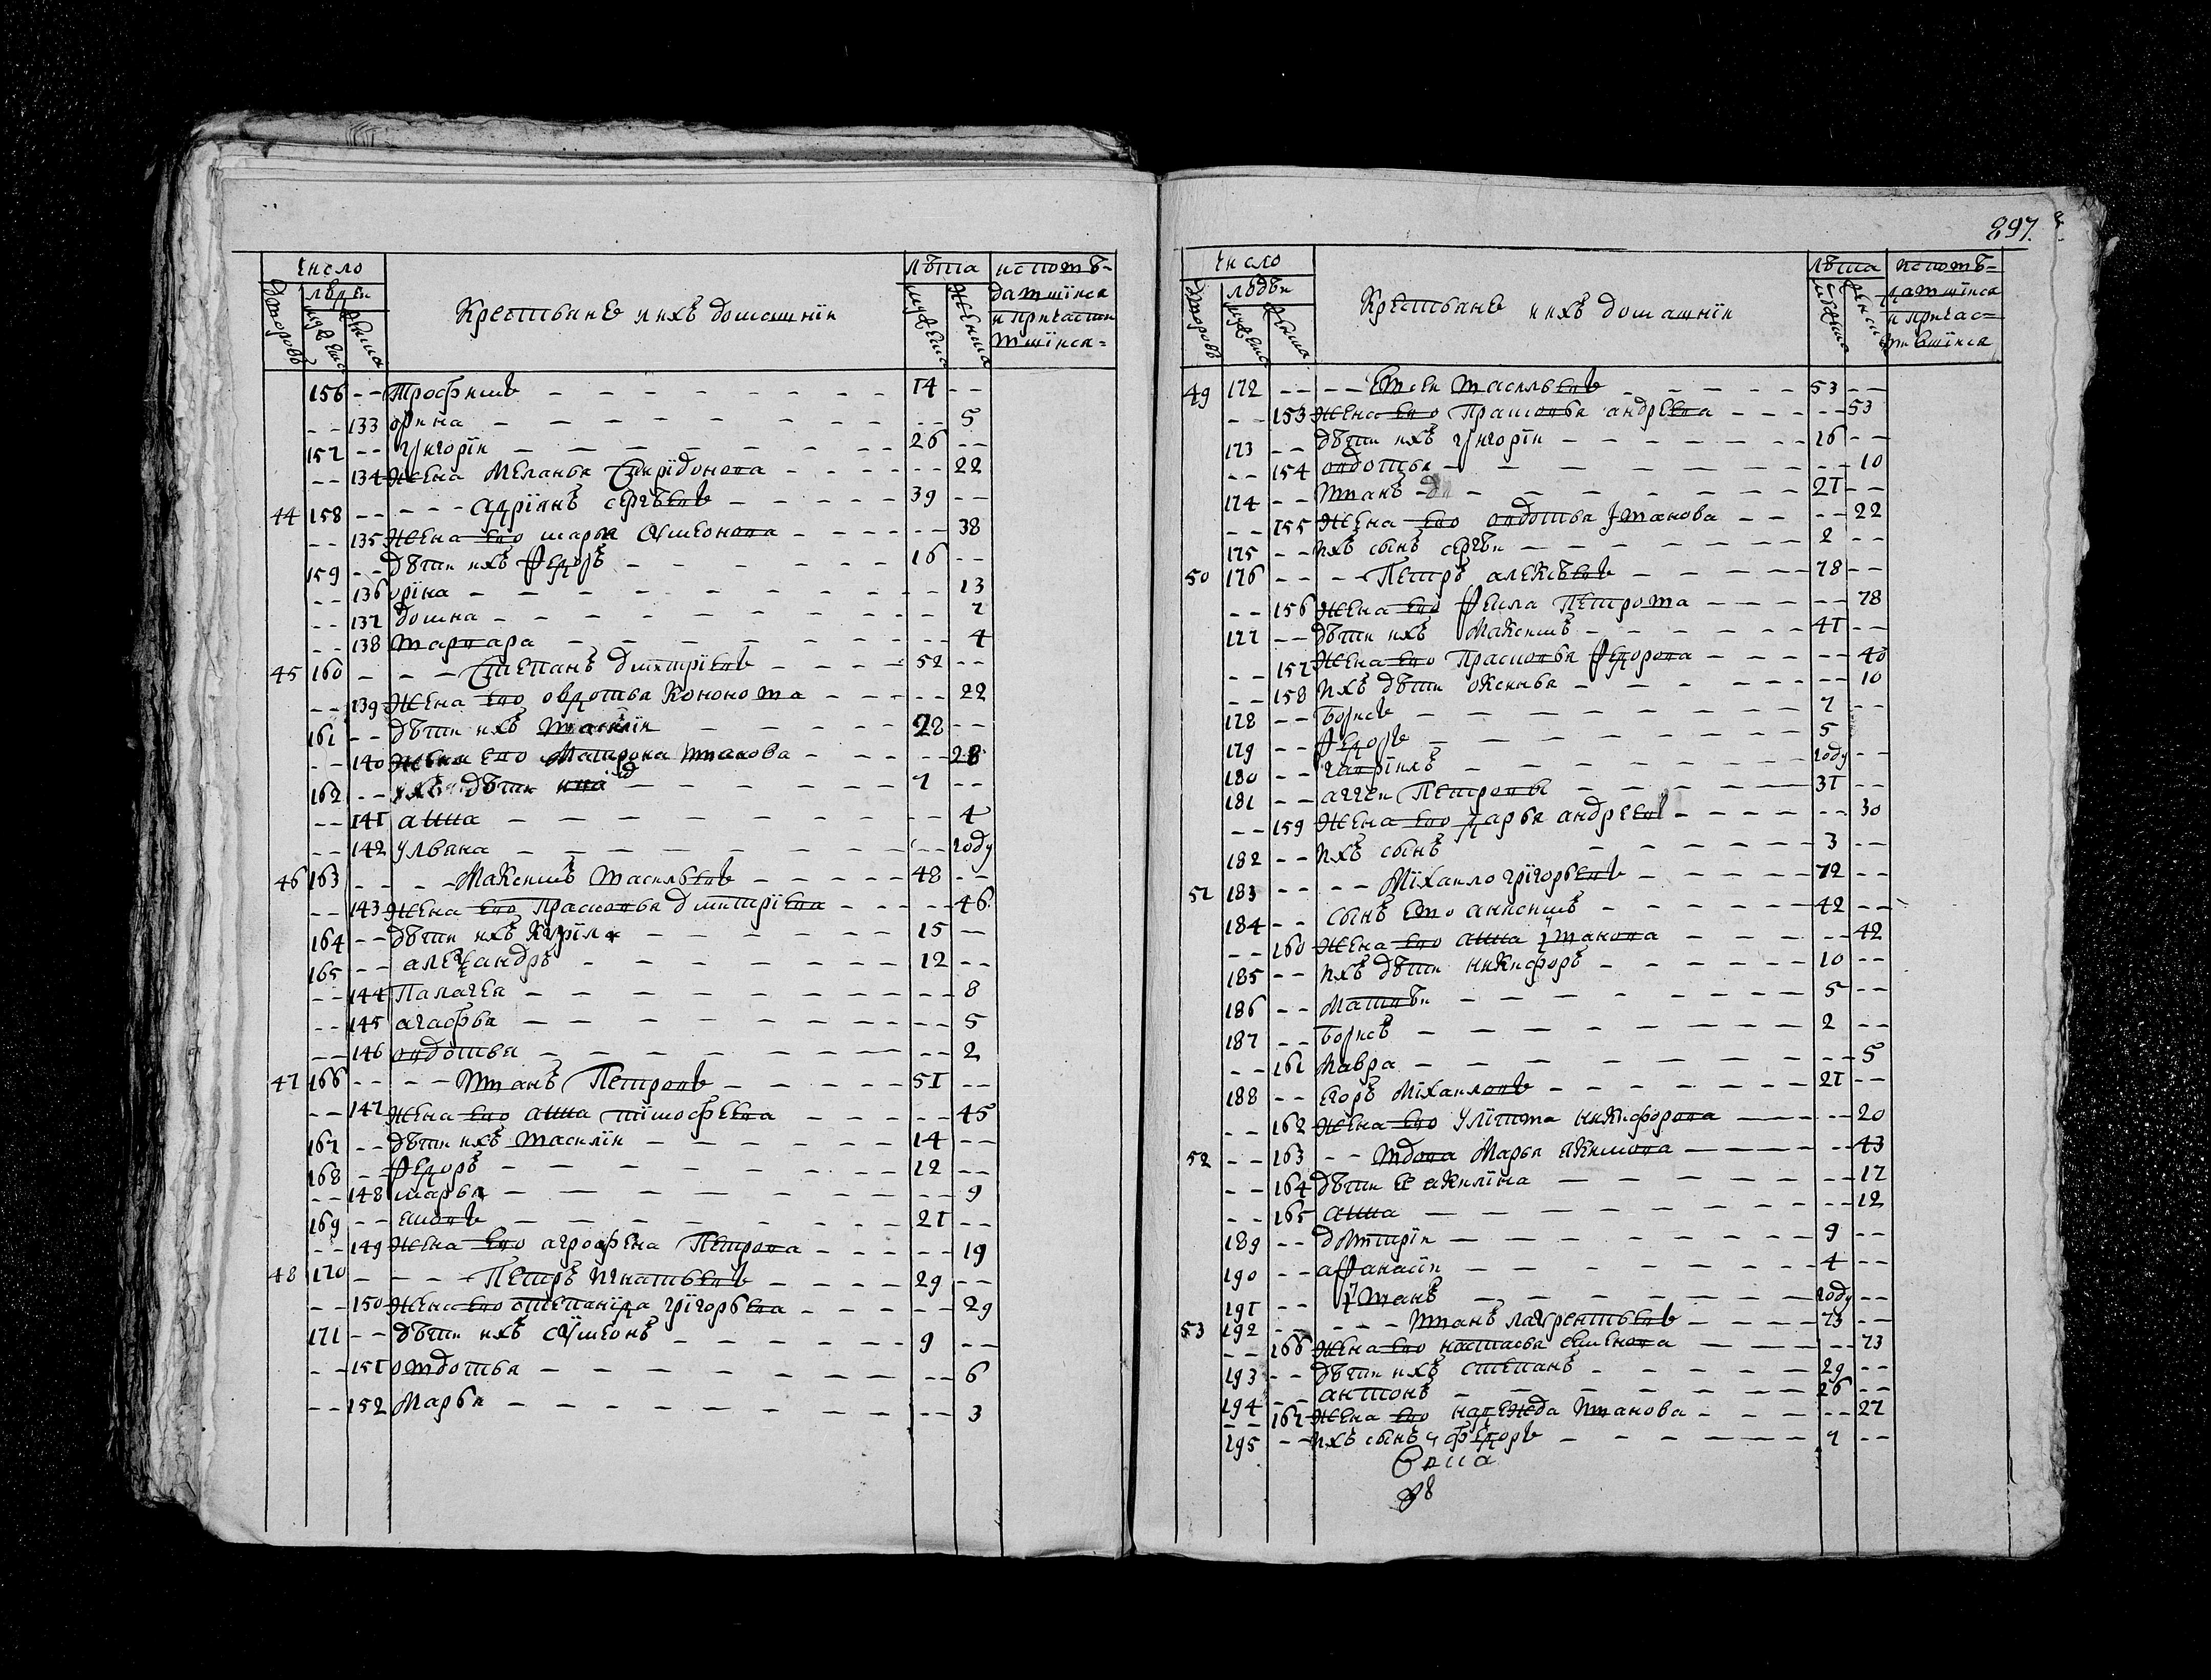 число
людеи
дворовъ
мужеска
женска
Крестьяне и ихъ домашнїи
лѣта
мужеска
женска
исповѣ-
давшїися
и причасти
вшїися-
156 -- Трофимъ 14 --
-- 133 орина -- 5
157 -- григорїи 26 --
-- 134 жена Меланья Спирїдонова -- 22
44 158 -- адрїянъ сергѣевъ 39 --
-- 135 жена ево марья Сумеонова -- 38
159 -- дѣти ихъ Федоръ 16 --
-- 136 орїна -- 13
-- 137 домна -- 7
-- 138 варвара -- 4
45 160 -- Степанъ дмитрїевъ 52 --
-- 139 жена ево овдотья Кононова -- 22
161 -- дѣти ихъ 28 --
-- 140 жена ево Матрона иванова -- 28
162 -- ихъ дѣти 7 --
-- 141 анна -- 4
-- 142 Ульяна -- году
46 163 -- Максимъ васильевъ 48 --
-- 143 жена ево Прасковья дмитрїева -- 46
164 -- дѣти ихъ Кирїла 15 --
165 -- алеѯандръ 12 --
-- 144 Палагея -- 8
-- 145 агафья -- 5
-- 146 овдотья -- 2
47 166 -- иванъ Петровъ 51 --
-- 147 жена ево анна тїмофеева -- 45
167 -- дѣти ихъ василїи 14 --
168 -- Федоръ 12 --
-- 148 марья -- 9
169 -- 21 --
-- 149 жена ево агрофена Петрова -- 19
48 170 -- Петръ игнатьевъ 29 --
-- 150 жена ево степанїда грїгорьева -- 29
171 -- дѣти ихъ сумеонъ 9 --
-- 151 овдотья -- 6
-- 152 Марья -- 3
897
число
людѣи
дворовъ
мужеска
женска
Крестьяне и ихъ домашнїи
лѣта
мужеска
женска
исповѣ-
давшїися
и причас-
тившїися
49 172 -- Евсеи васильевъ 53 --
-- 153 жена ево Прасковья андреева -- 53
173 -- дѣти ихъ григорїи 16 --
-- 154 овдотья -- 10
174 -- иванъ 21 --
-- 155 жена ево овдотья Іванова -- 22
175 -- ихъ сынъ сергѣи 2 --
50 176 -- Петръ алексѣевъ 78 --
-- 156 жена ево Фекла Петрова -- 78
177 -- дѣти ихъ Максимъ 41 --
-- 157 жена ево Прасковья Федорова -- 40
-- 158 ихъ дѣти оксинья -- 10
178 -- Борисъ 7 --
179 -- Федоръ 5
180 -- гаврїилъ году --
181 -- аггеи Петровъ 31 --
-- 159 жена ево дарья андреев -- 30
182 -- ихъ сынъ 3 --
51 183 -- Мїхаило грїгорьевъ 72 --
184 -- сынъ ево анисимъ 42 --
-- 160 жена ево анна Іванова -- 42
185 -- ихъ дѣти никифоръ 10 --
186 -- Матвѣи 5 --
187 -- Борисъ 2 --
-- 161 Мавра -- 5
188 -- егоръ Мїхаиловъ 21 --
-- 162 жена ево Улїтта никифорова -- 20
52 -- 163 -- вдова Марья екимова -- 43
-- 164 дѣти ея акилїна -- 17
-- 165 анна -- 12
189 -- дмитрїи 9 --
190 -- афанасїи 4 --
191 -- Іванъ году --
53 192 -- иванъ лаурентьевъ 73 --
-- 166 жена ево настасья семенова -- 73
193 -- дѣти ихъ степанъ 29 --
194 -- антонъ 26 --
-- 167 жена ево надежда иванова -- 27
195 -- ихъ сынъ федоръ 7 --
98